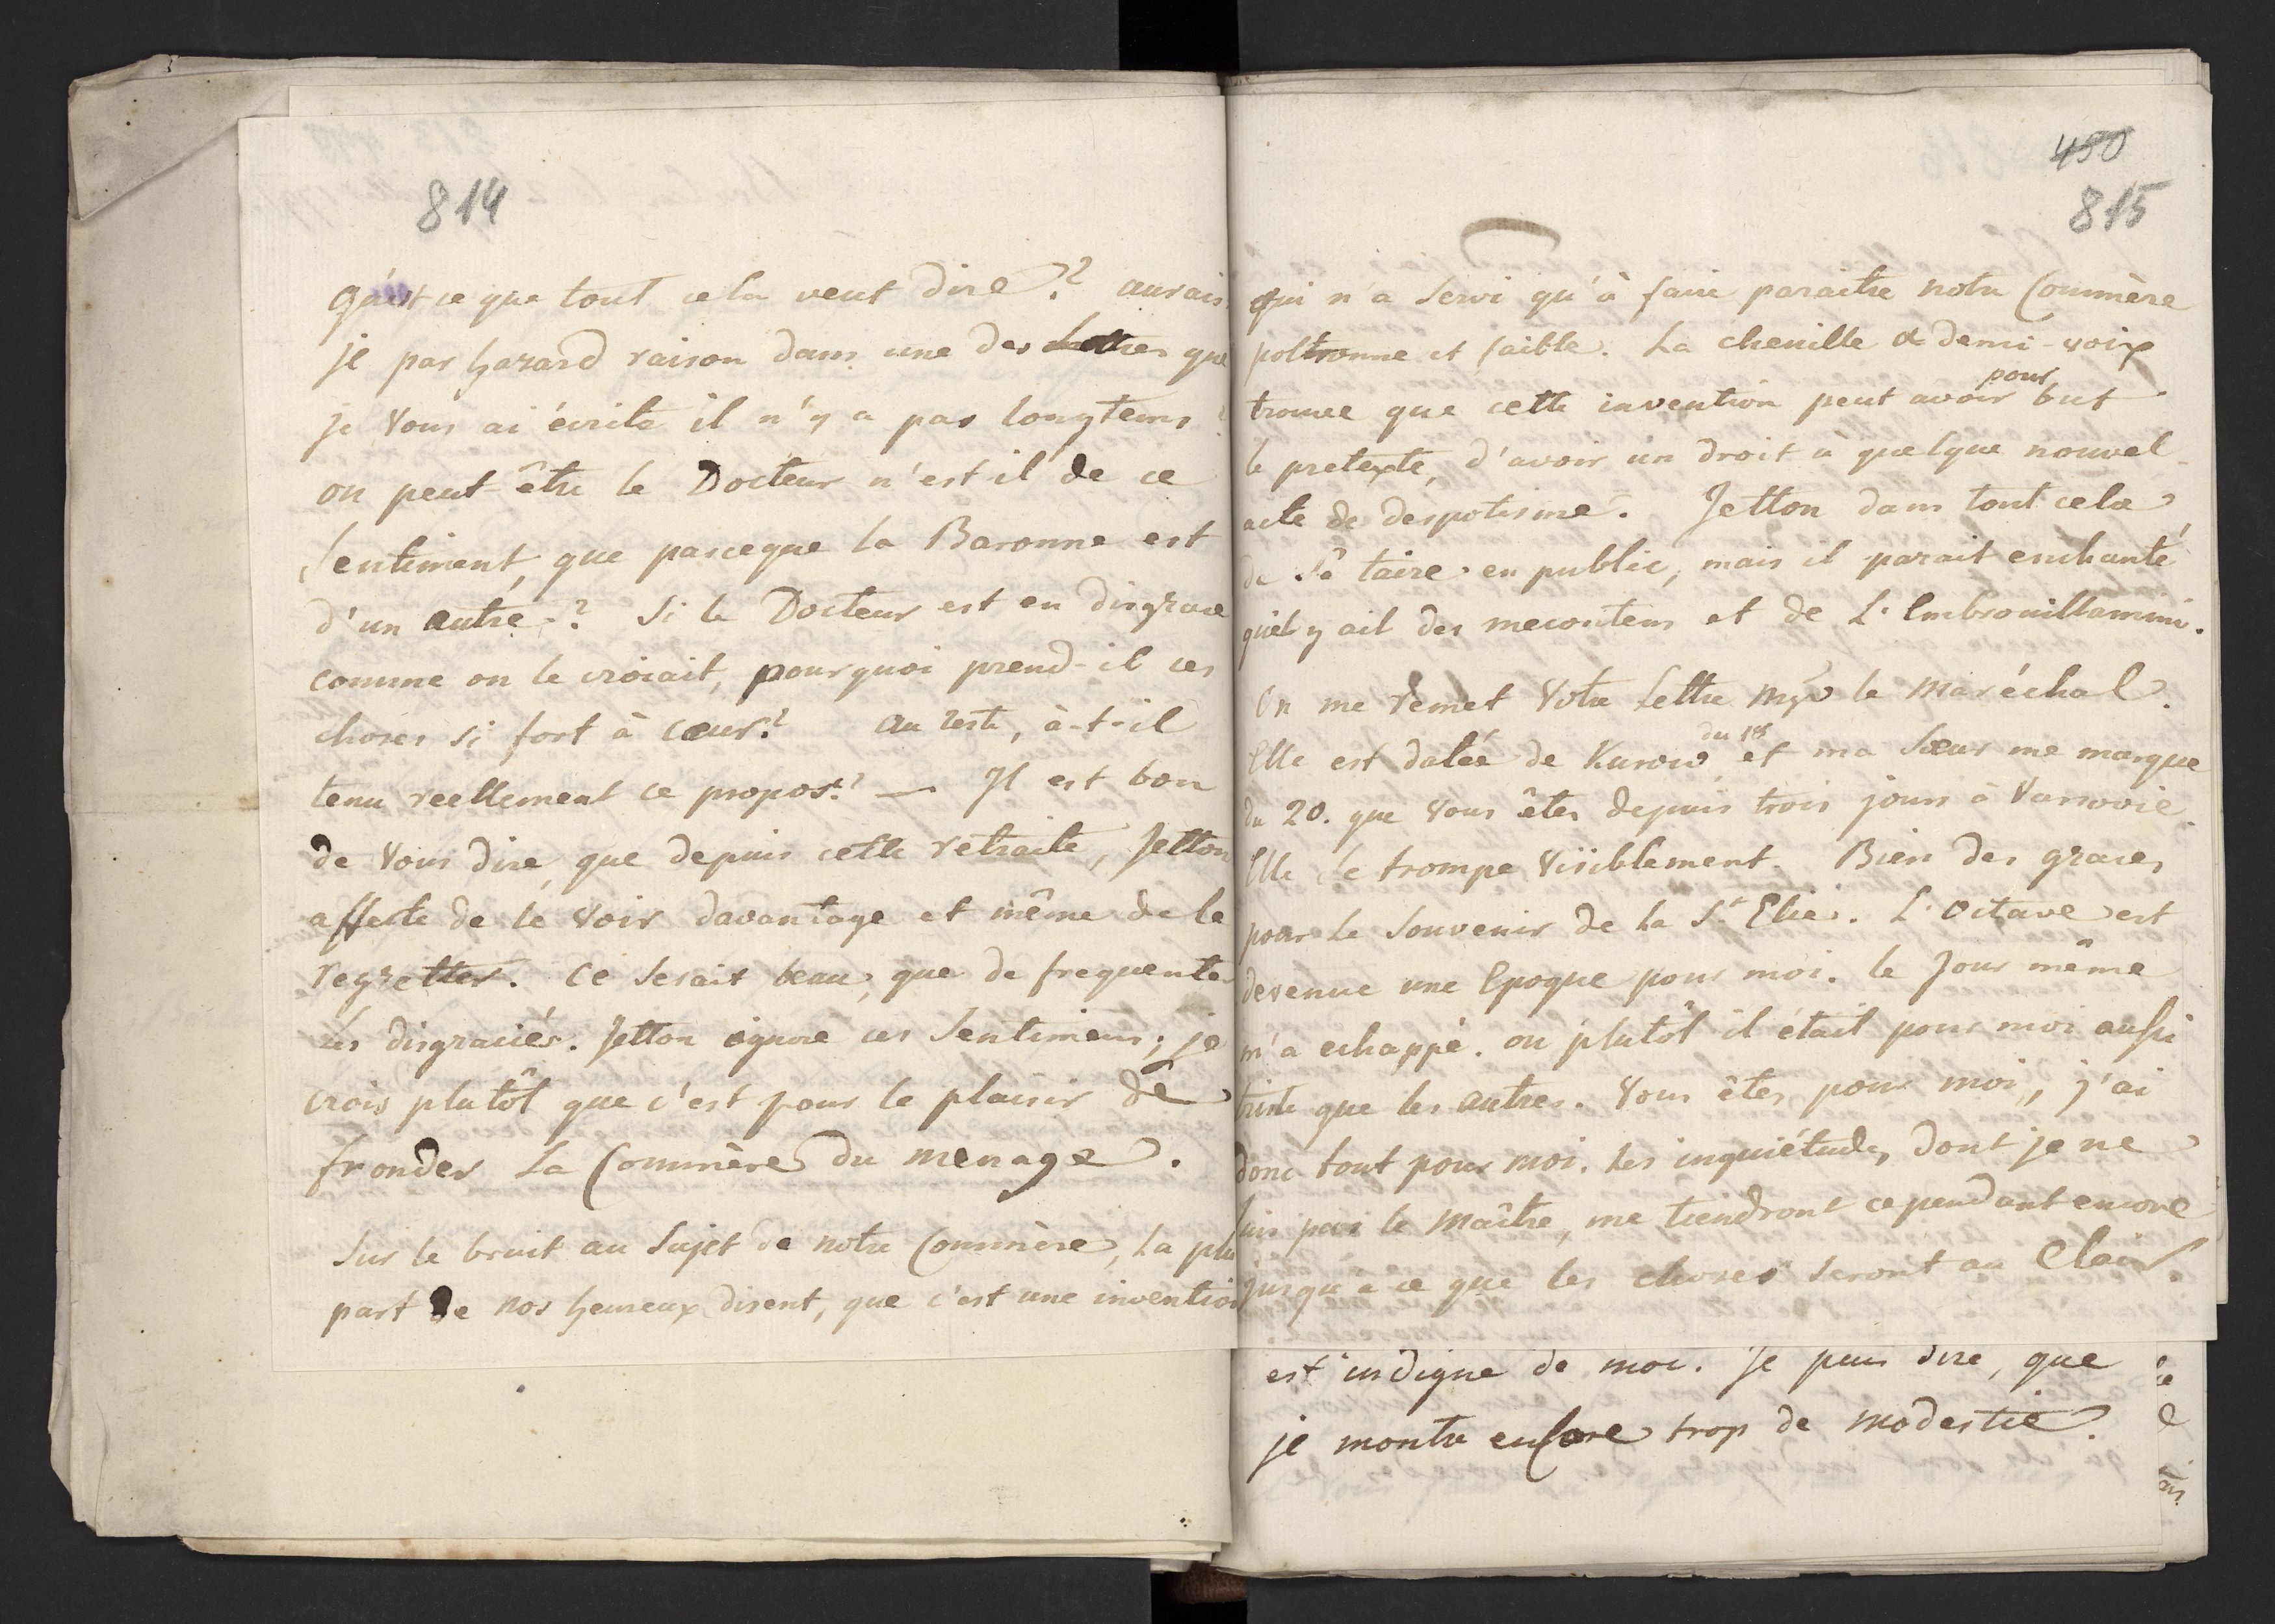 814
Qu'est ce que tout cela veut dire? aurais
je par hazard raison dans une des Lettres que
je Vous ai écrite il n'y a pas longtems?
ou peut-être le Docteur n'est il de ce
Sentiment, que parceque la Baronne est
d'un autre? Si le Docteur est en disgrace
comme on le croiait, pourquoi prend-il ces
choses si fort à coeur? au reste, à-t-il
tenu reellement ce propos? — Il est bon
de Vous dire, que depuis cette retraite, Jetton
affecte de le Voir davantage et même de le
regretter. Ce serait beau, que de frequenter
les disgraciés. Jetton ignore ces Sentimens; je
crois plutôt que c'est pour le plaisir de
fronder La Commère du menage.
Sur le bruit au Sujet de notre Commère, La plu
part de nos heureux disent, que c'est une invention
450
815
qui n'a Servi qu'à faire paraitre notre Commère
poltronne et faible. La chenille à demi-voix
trouve que cette invention peut avoir pour but
le pretexte, d'avoir un droit à quelque nouvel
acte de despotisme. Jetton dans tout cela,
de Se taire en public, mais il parait enchanté
qu'il y ait des mecontens et de L'Embrouillamini.
On me remet Votre Lettre Mgr le Maréchal.
Elle est datée de Kurow du 18 et ma Soeur me marque
du 20. que Vous êtes depuis trois jours à Varsovie.
Elle Se trompe Visiblement. Bien des graces
pour Le Souvenir de la St Elie. L'Octave est
devenue une Epoque pour moi. le Jour même
m'a echappé. ou plutôt il était pour moi aussi
triste que les autres. Vous êtes pour moi, j'ai
donc tout pour moi. Les inquiétudes, dont je ne
suis pas le Maître, me tiendront cependant encore
jusqu'à ce que les choses seront au Clair.
est indigne de moi. Je puis dire, que
je montre encore trop de modestie.